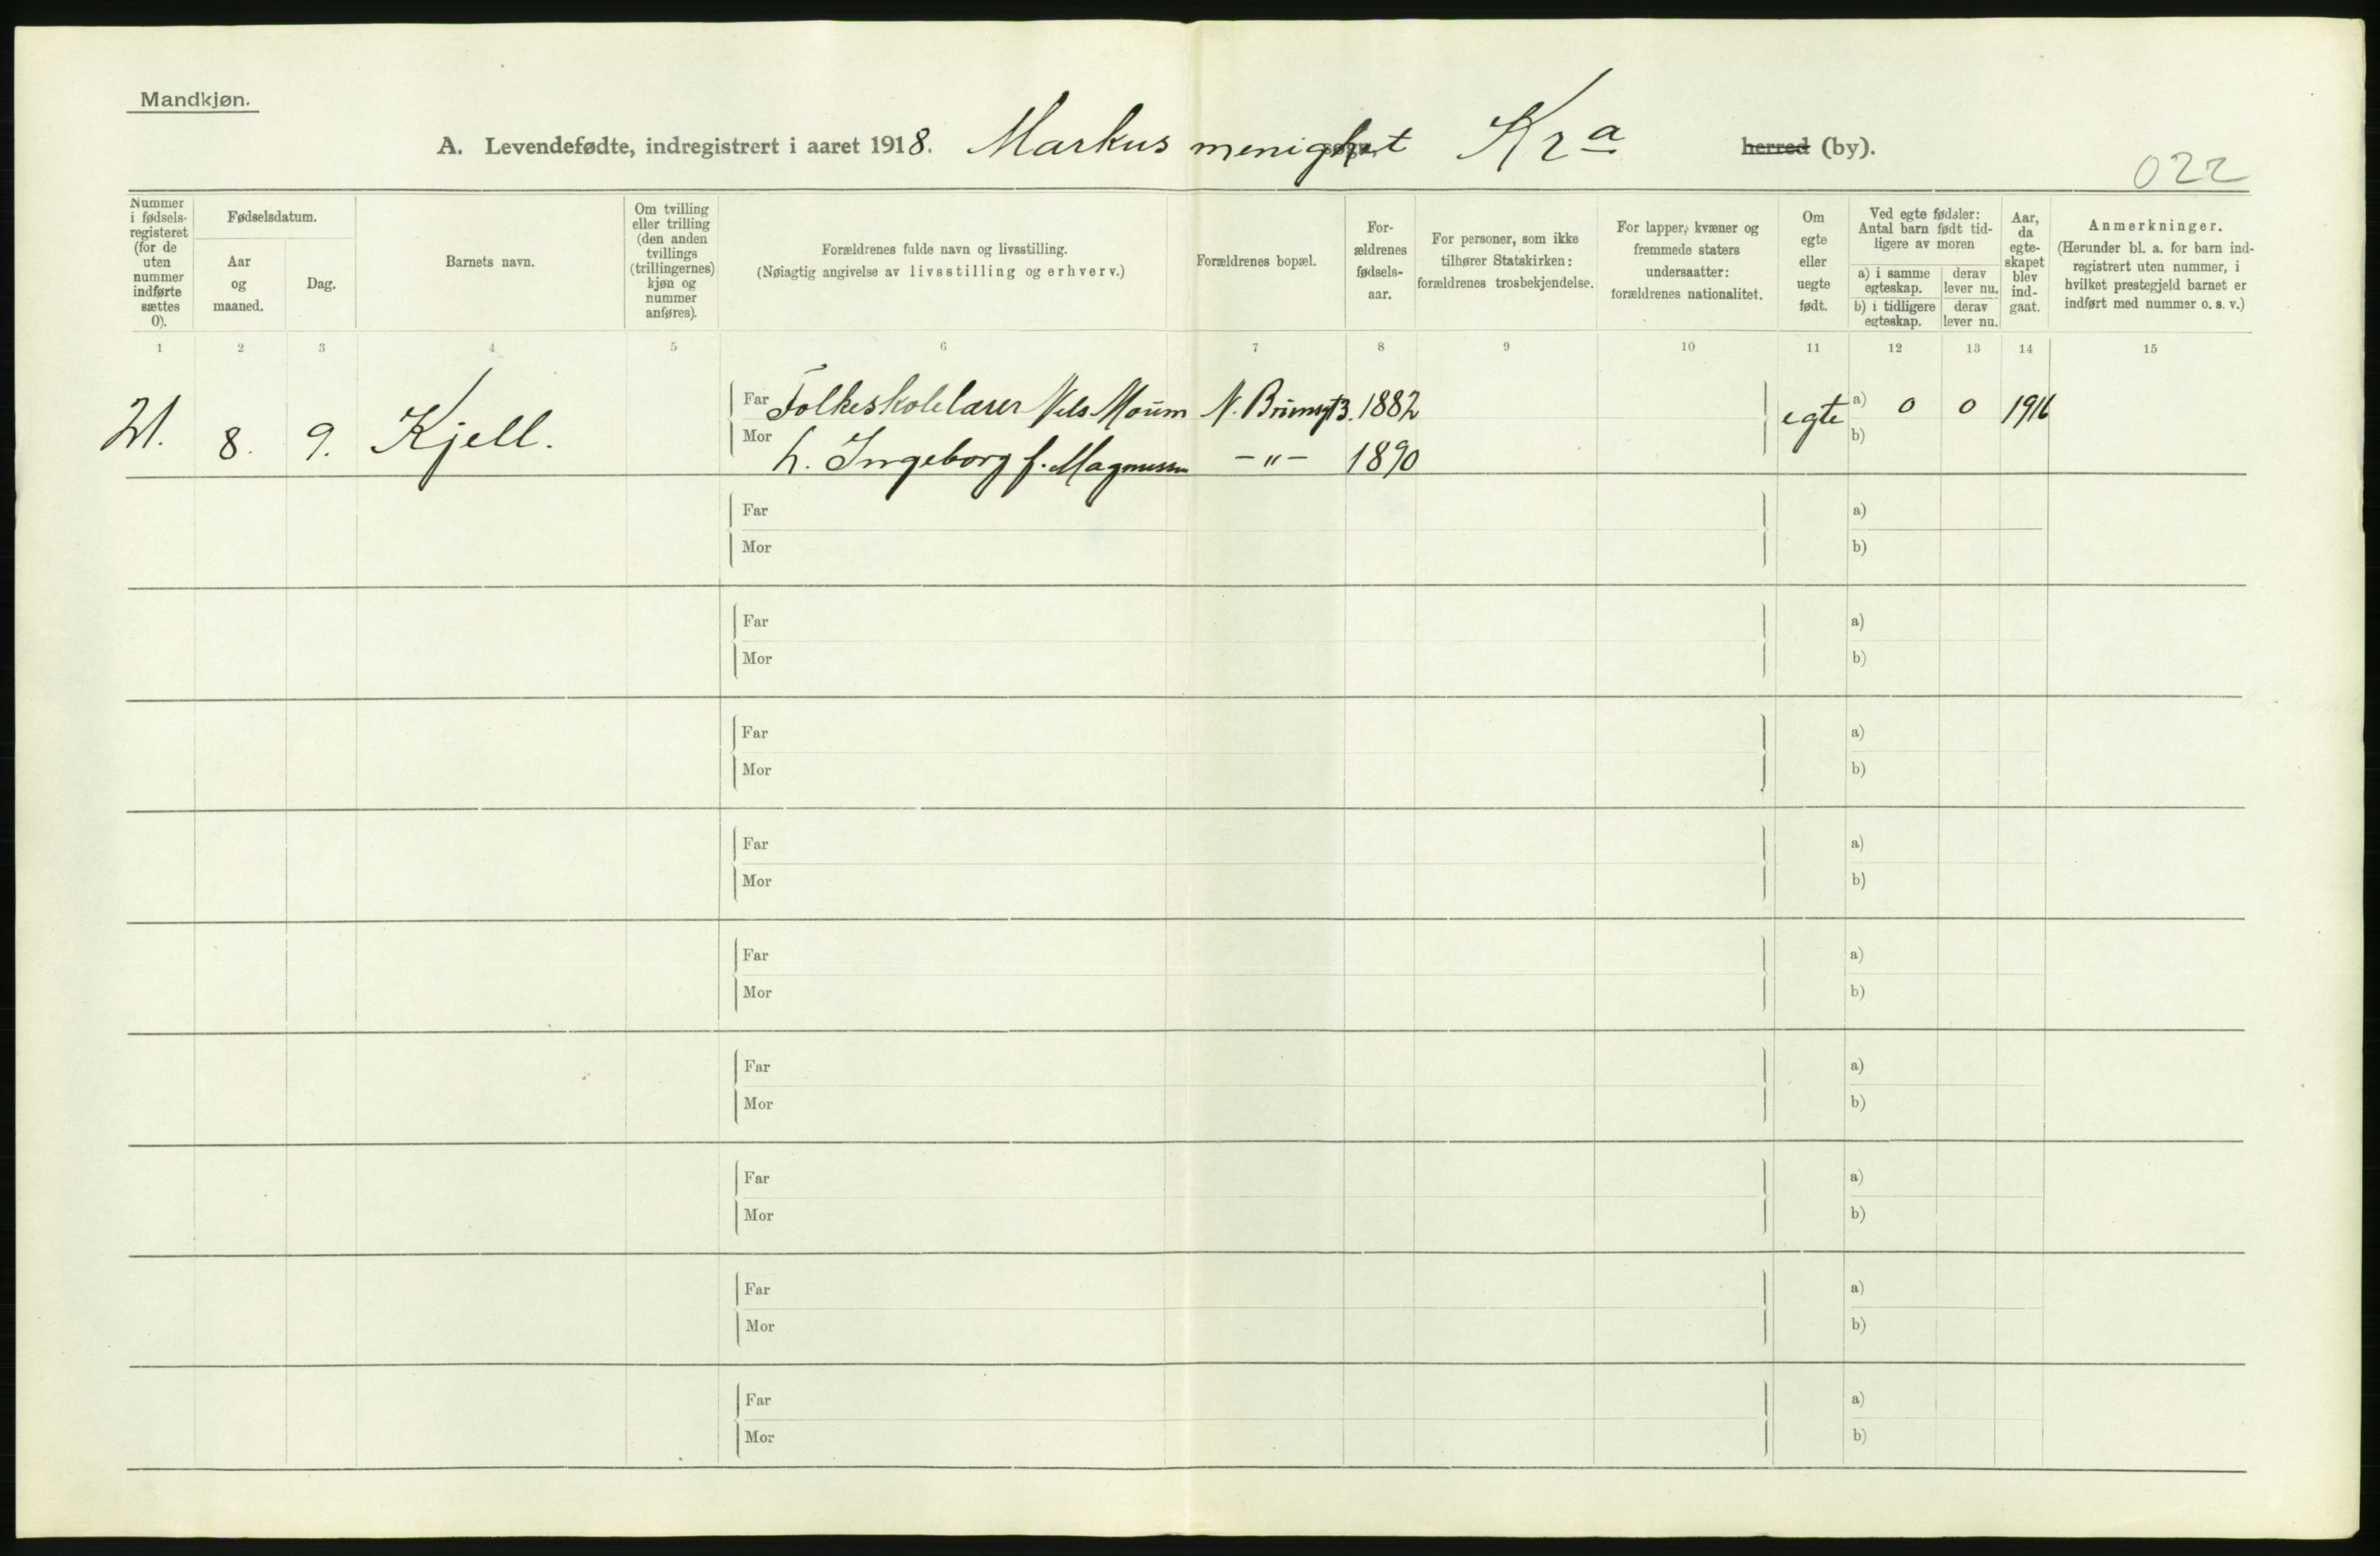 Mandkjøn.
A. Levendefødte, indregistrert i aaret 1918. Markus menighet Kra herred (by).
022
Nummer i fødsels-registeret (for de uten nummer indførte sættes 0).
Fødselsdatum.
Aar og maaned.
Dag.
Barnets navn.
Om tvilling eller trilling (den anden tvillings (trillingernes) kjøn og nummer anføres).
Forældrenes fulde navn og livsstilling.
(Nøiagtig angivelse av livsstilling og erhverv.)
Forældrenes bopæl.
For-ældrenes fødsels-aar.
For personer, som ikke tilhører Statskirken: forældrenes trosbekjendelse.
For lapper, kvæner og fremmede staters undersaatter: forældrenes nationalitet.
Om egte eller uegte født.
Ved egte fødsler: Antal barn født tid-ligere av moren
a) i samme egteskap.
derav lever nu.
b) i tidligere egteskap.
derav lever nu.
Aar, da egte-skapet blev ind-gaat.
Anmerkninger.
(Herunder bl. a. for barn ind-registrert uten nummer, i hvilket prestegjeld barnet er indført med nummer o. s. v.)
1 2 3 4 5 6 7 8 9 10 11 12 13 14 15
21. 8. 9. Kjell.
Far Folkeskolelærer Nils Moum N. 1882 egte a) 0 0 1916
Mor h. Ingeborg f. Magnussen -"- 1890 b)
Far a)
Mor b)
Far a)
Mor b)
Far a)
Mor b)
Far a)
Mor b)
Far a)
Mor b)
Far a)
Mor b)
Far a)
Mor b)
Far a)
Mor b)
Far a)
Mor b)